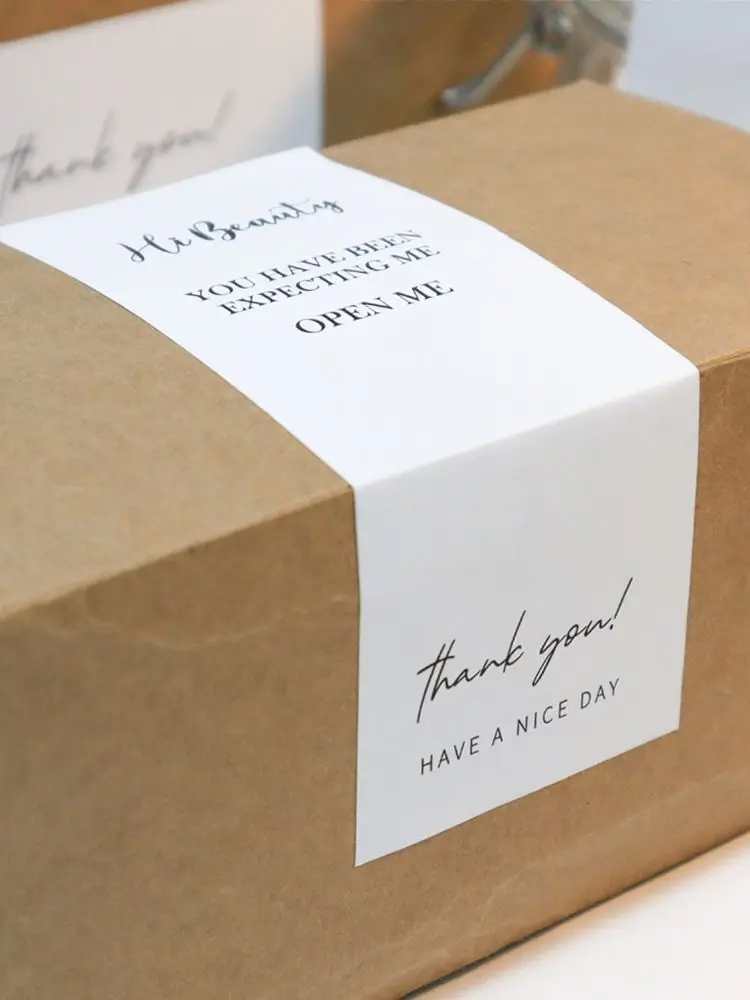 thank you!
Hi Beauty
YOU HAVE BEEN
EXPECTING ME
OPEN ME
thank you!
HAVE A NICE DAY